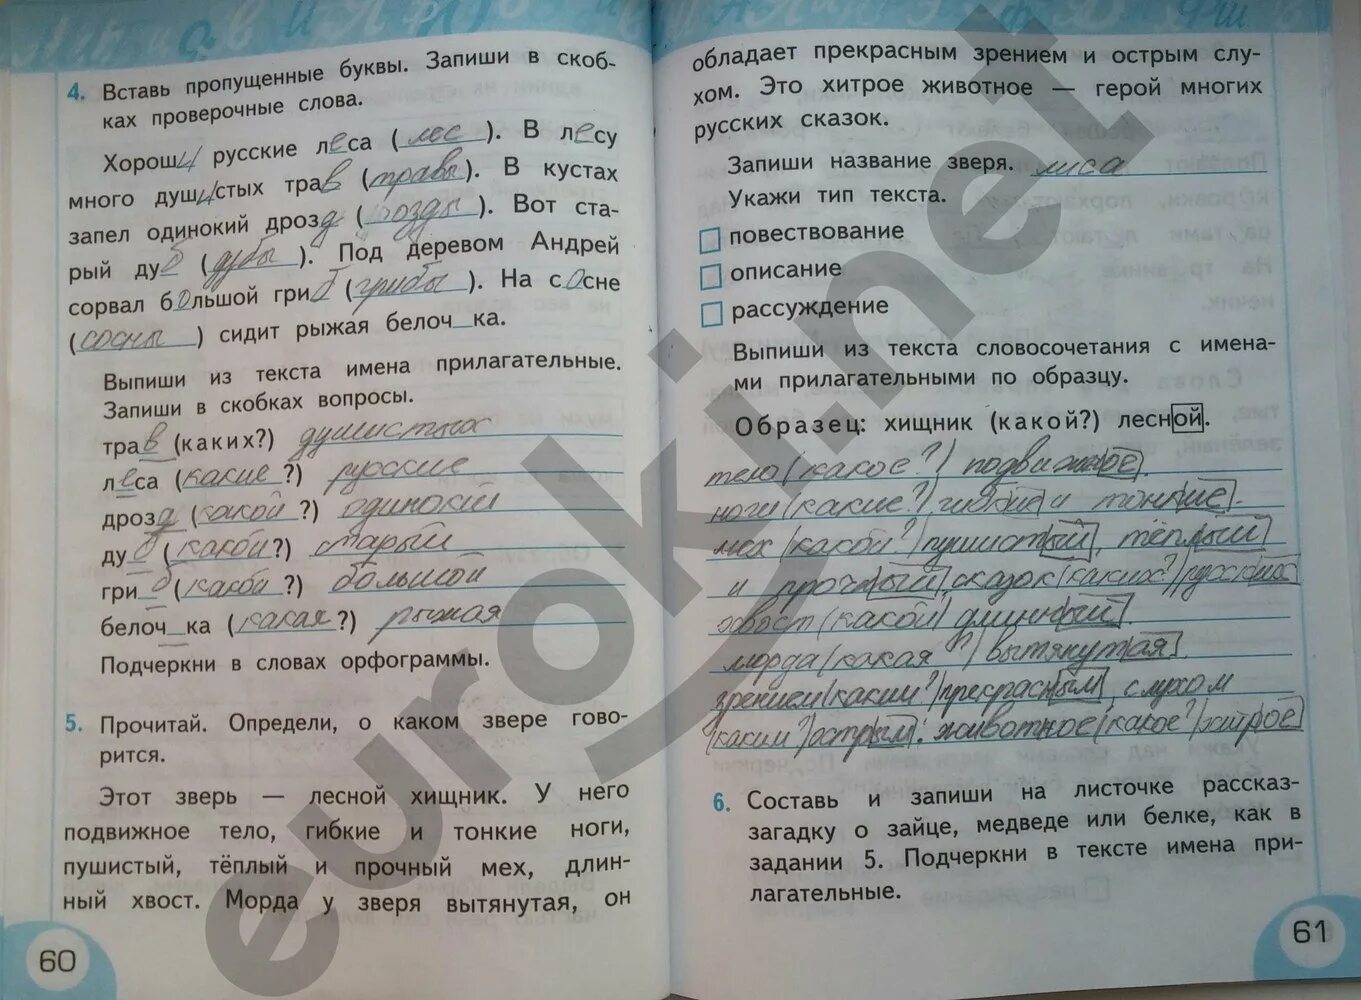 4. Вставь пропущенные буквы. Запиши в скоб-
ках проверочные слова.
Хороши русские леса (лес). В лесу
много душистых трав (травы). В кустах
запел одинокий дрозд (розды). Вот ста-
рый дуб (дубы). Под деревом Андрей
сорвал большой гриб (грибы). На сосне
(сосны) сидит рыжая белоч_ка.
Выпиши из текста имена прилагательные.
Запиши в скобках вопросы.
трав (каких?) душистых
леса (какие?) русские
дрозд (какой?) одинокий
дуб (какой?) старый
гриб (какой?) большой
белоч_ка (какая?) рыжая
Подчеркни в словах орфограммы.
5. Прочитай. Определи, о каком звере гово-
рится.
Этот зверь — лесной хищник. У него
подвижное тело, гибкие и тонкие ноги,
пушистый, тёплый и прочный мех, длин-
ный хвост. Морда у зверя вытянутая, он
60
обладает прекрасным зрением и острым слу-
хом. Это хитрое животное — герой многих
русских сказок.
Запиши название зверя. лиса
Укажи тип текста.
повествование
описание
рассуждение
Выпиши из текста словосочетания с имена-
ми прилагательными по образцу.
Образец: хищник (какой?) лесной.
тело (какое?) подвижное.
ноги (какие?) гибкие и тонкие.
мех (какой?) пушистый, тёплый
и прочный, сказок (каких?) русских
хвост (какой) длинный.
морда (какая?) вытянутая.
зрением (каким?) прекрасным, слухом
(каким?) острым. животное (какое?) хитрое
6. Составь и запиши на листочке рассказ-
загадку о зайце, медведе или белке, как в
задании 5. Подчеркни в тексте имена при-
лагательные.
61
euroki.net